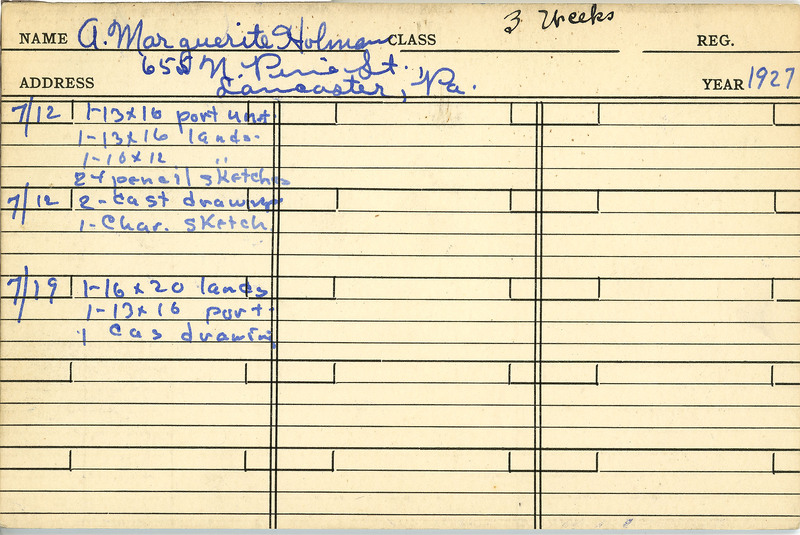 3 Weeks
NAME A. Marguerite Holman CLASS REG.
655 N. Pine St.,
ADDRESS Lancaster, Pa. YEAR 1927
7/12 1-13x16 port unf.
1-13x16 lands.
1-10x12 "
24 pencil sketches
7/12 2-cast drawings
1-Char. sketch
7/19 1-16x20 lands
1-13x16 port.
1 Cas drawing